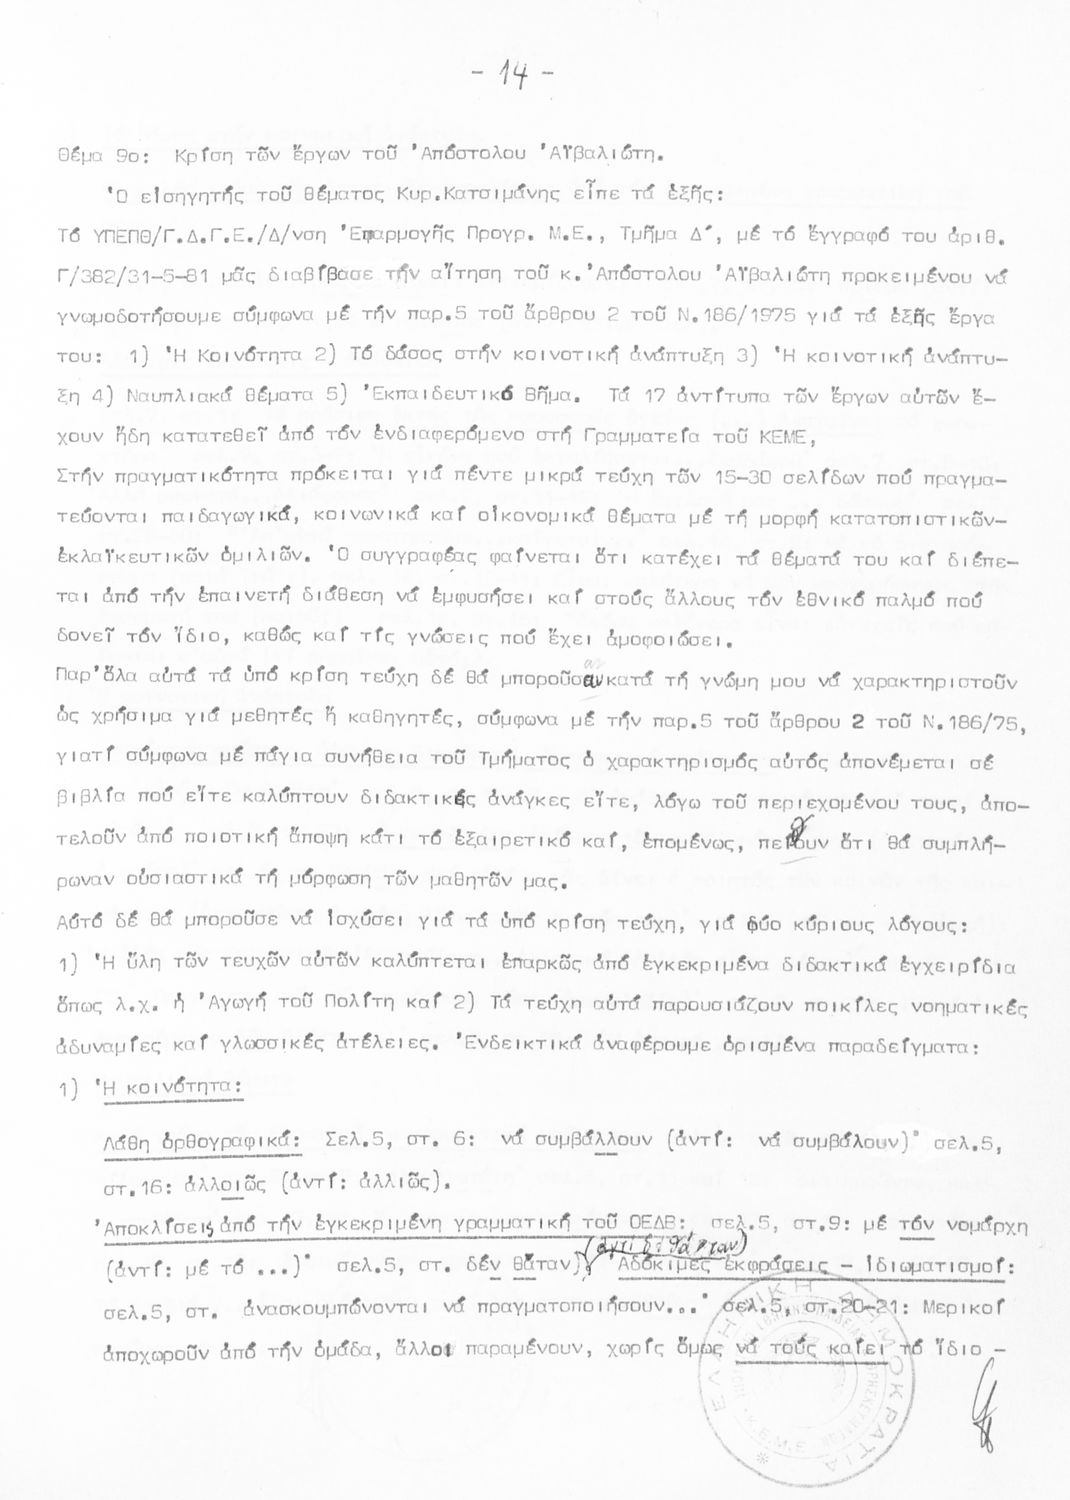 - 14 -
Θέμα 9ο: Κρίση τῶν ἔργων τοῦ Ἀπόστολου Ἀϊβαλιώτη.
Ὁ εἰσηγητής τοῦ θέματος Κυρ.Κατσιμάνης εἶπε τά ἑξῆς:
Τό ΥΠΕΠΘ/Γ.Δ.Γ.Ε./Δ/νση Ἐφαρμογῆς Προγρ. Μ.Ε., Τμῆμα Δ´, μέ τό ἔγγραφό του ἀριθ.
Γ/382/31-5-81 μᾶς διαβίβασε τήν αἴτηση τοῦ κ.Ἀπόστολου Ἀϊβαλιώτη προκειμένου νά
γνωμοδοτήσουμε σύμφωνα μέ τήν παρ.5 τοῦ ἄρθρου 2 τοῦ Ν.186/1975 γιά τά ἑξῆς ἔργα
του: 1) Ἡ Κοινότητα 2) Τό δάσος στήν κοινοτική ἀνάπτυξη 3) Ἡ κοινοτική ἀνάπτυ-
ξη 4) Ναυπλιακά θέματα 5) Ἐκπαιδευτικό Βῆμα. Τά 17 ἀντίτυπα τῶν ἔργων αὐτῶν ἔ-
χουν ἤδη κατατεθεῖ ἀπό τόν ἐνδιαφερόμενο στή Γραμματεία τοῦ ΚΕΜΕ,
Στήν πραγματικότητα πρόκειται γιά πέντε μικρά τεύχη τῶν 15-30 σελίδων πού πραγμα-
τεύονται παιδαγωγικά, κοινωνικά καί οἰκονομικά θέματα μέ τή μορφή κατατοπιστικῶν-
ἐκλαϊκευτικῶν ὁμιλιῶν. Ὁ συγγραφέας φαίνεται ὅτι κατέχει τά θέματά του καί διέπε-
ται ἀπό τήν ἐπαινετή διάθεση νά ἐμφυσήσει καί στούς ἄλλους τόν ἐθνικό παλμό πού
δονεῖ τόν ἴδιο, καθώς καί τίς γνώσεις πού ἔχει ἀμοφοιώσει.
Παρ' ὅλα αὐτά τά ὑπό κρίση τεύχη δέ θά μποροῦσαν κατά τή γνώμη μου νά χαρακτηριστοῦν
ὡς χρήσιμα γιά μεθητές ἤ καθηγητές, σύμφωνα μέ τήν παρ.5 τοῦ ἄρθρου 2 τοῦ Ν.186/75,
γιατί σύμφωνα μέ πάγια συνήθεια τοῦ Τμήματος ὁ χαρακτηρισμός αὐτός ἀπονέμεται σέ
βιβλία πού εἴτε καλύπτουν διδακτικές ἀνάγκες εἴτε, λόγω τοῦ περιεχομένου τους, ἀπο-
τελοῦν ἀπό ποιοτική ἄποψη κάτι τό ἐξαιρετικό καί, ἐπομένως, πείθουν ὅτι θά συμπλή-
ρωναν οὐσιαστικά τή μόρφωση τῶν μαθητῶν μας.
Αὐτό δέ θά μποροῦσε νά ἰσχύσει γιά τά ὑπό κρίση τεύχη, γιά δύο κύριους λόγους:
1) Ἡ ὕλη τῶν τευχῶν αὐτῶν καλύπτεται ἐπαρκῶς ἀπό ἐγκεκριμένα διδακτικά ἐγχειρίδια
ὅπως λ.χ. ἡ Ἀγωγή τοῦ Πολίτη καί 2) Τά τεύχη αὐτά παρουσιάζουν ποικίλες νοηματικές
ἀδυναμίες καί γλωσσικές ἀτέλειες. Ἐνδεικτικά ἀναφέρουμε ὁρισμένα παραδείγματα:
1) Ἡ κοινότητα:
Λάθη ὀρθογραφικά: Σελ.5, στ. 6: νά συμβάλλουν (ἀντί: νά συμβάλουν)˙ σελ.5,
στ.16: ἀλλοιῶς (ἀντί: ἀλλιῶς).
Ἀποκλίσεις ἀπό τήν ἐγκεκριμένη γραμματική τοῦ ΟΕΔΒ: σελ.5, στ.9: μέ τόν νομάρχη
(ἀντί: μέ τό ...)˙ σελ.5, στ. δέν θἄταν) (ἀντί δέ θά ἦταν) Ἀδόκιμες ἐκφράσεις - Ἰδιωματισμοί:
σελ.5, στ. ἀνασκουμπώνονται νά πραγματοποιήσουν...˙ σελ.5, στ.20-21: Μερικοί
ἀποχωροῦν ἀπό τήν ὁμάδα, ἄλλοι παραμένουν, χωρίς ὅμως νά τούς καίει τό ἴδιο -
ΕΛΛΗΝΙΚΗ ΔΗΜΟΚΡΑΤΙΑ
Κ.Ε.Μ.Ε.